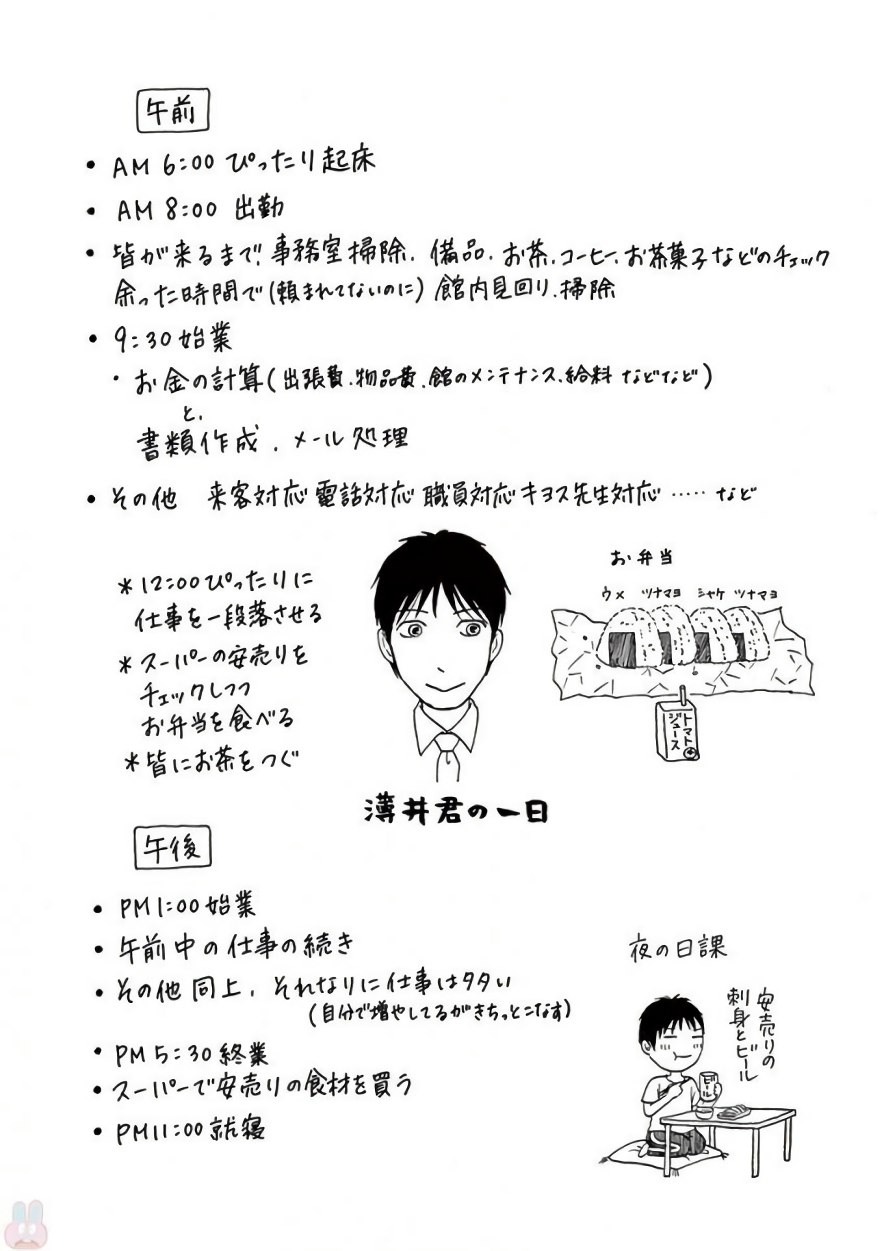 午前
・AM 6:00 ぴったり起床
・AM 8:00 出勤
・皆が来るまで、事務室掃除、備品、お茶、コーヒー、お茶菓子などのチェック
余った時間で(頼まれてないのに)館内見回り、掃除
・9:30始業
・お金の計算(出張費、物品費、館のメンテナンス、給料 などなど)
と、
書類作成、メール処理
・その他 来客対応 電話対応 職員対応 キヨス先生対応 …… など
*12:00ぴったりに
仕事を一段落させる
*スーパーの安売りを
チェックしつつ
お弁当を食べる
*皆にお茶をつぐ
お弁当
ウメ ツナマヨ シャケ ツナマヨ
トマト
ジュース
薄井君の一日
午後
・PM1:00始業
・午前中の仕事の続き
・その他 同上、それなりに仕事は多い
(自分で増やしてるがきちっとこなす)
・PM 5:30 終業
・スーパーで安売りの食材を買う
・PM11:00就寝
夜の日課
安売りの
刺身とビール
ビール